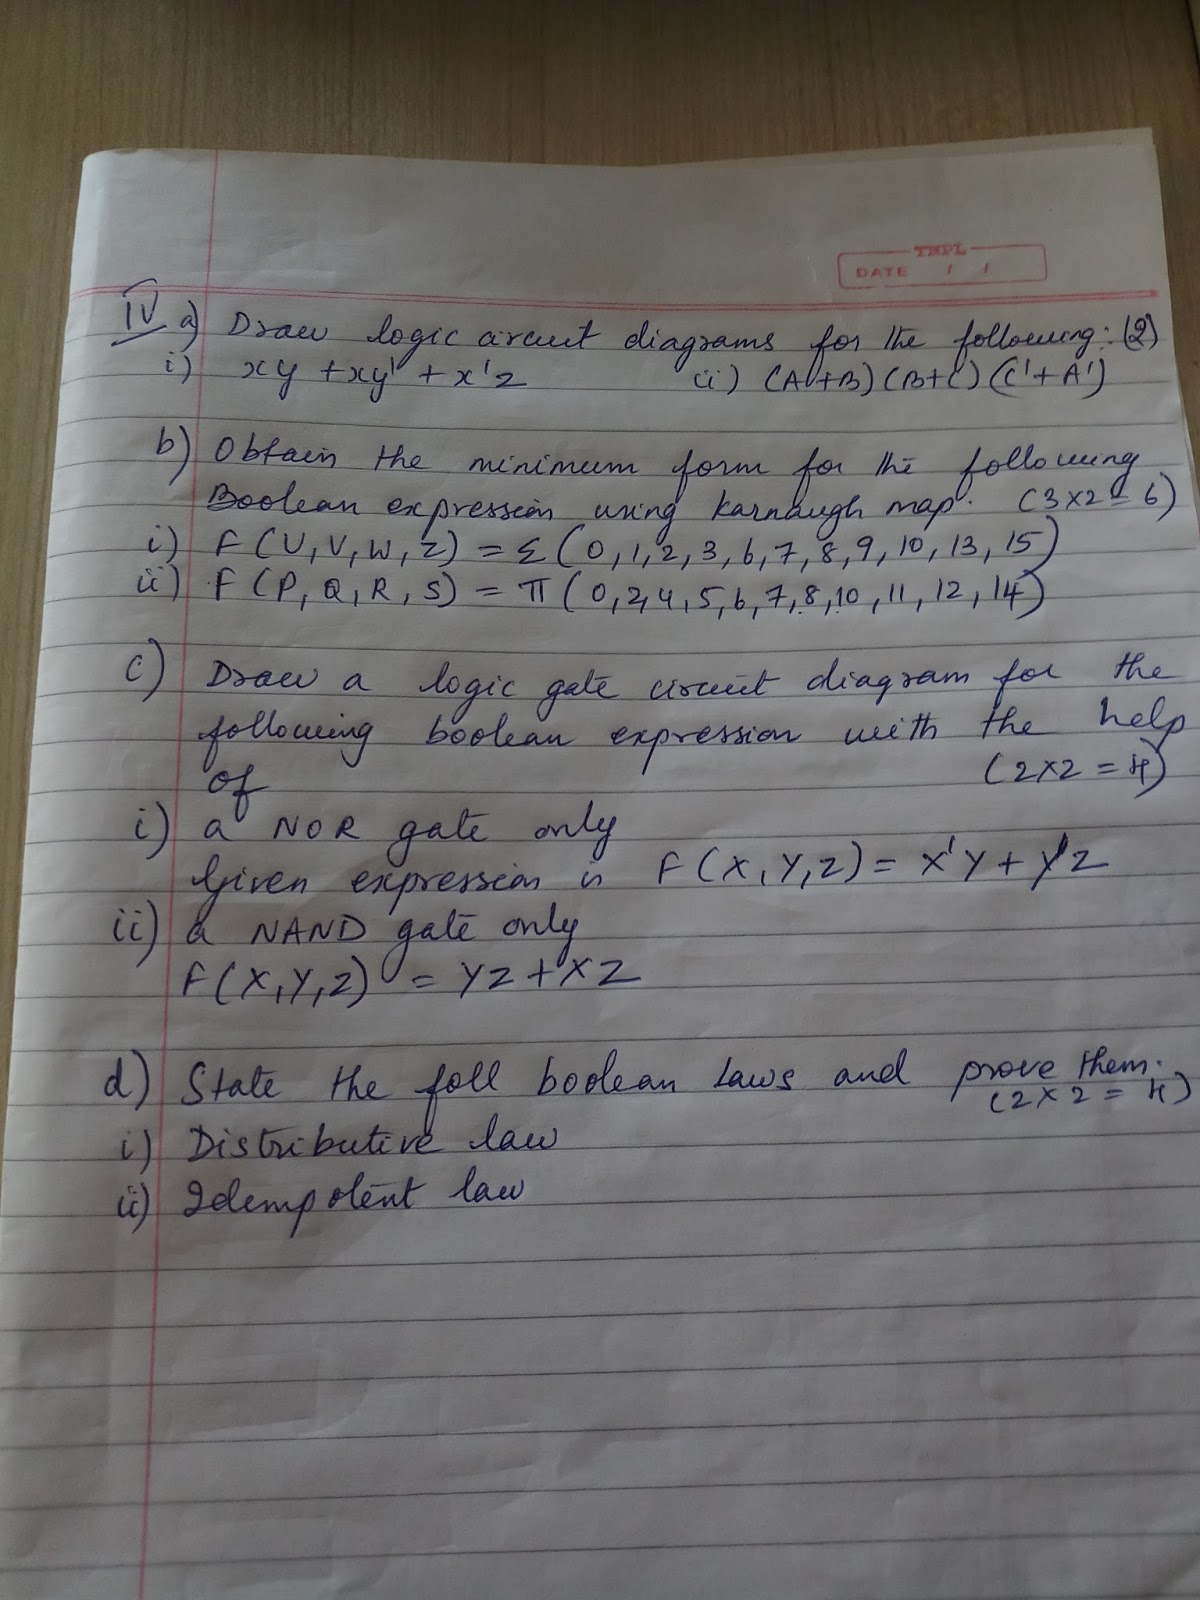 TNPL
DATE / /
IV a) Draw logic circuit diagrams for the following: (2)
i) xy + xy' + x'z ii) (A+B) (B+C) (C'+A')
b) Obtain the minimum form for the following
Boolean expression using Karnaugh map. (3x2=6)
i) F(U,V,W,Z) = Σ(0,1,2,3,6,7,8,9,10,13,15)
ii) F(P,Q,R,S) = π(0,2,4,5,6,7,8,10,11,12,14)
c) Draw a logic gate circuit diagram for the
following boolean expression with the help
of (2x2=4)
i) a NOR gate only
Given expression is F(X,Y,Z) = X'Y + Y'Z
ii) a NAND gate only
F(X,Y,Z) = YZ + XZ
d) State the foll boolean laws and prove them.
(2x2=4)
i) Distributive law
ii) Idempotent law